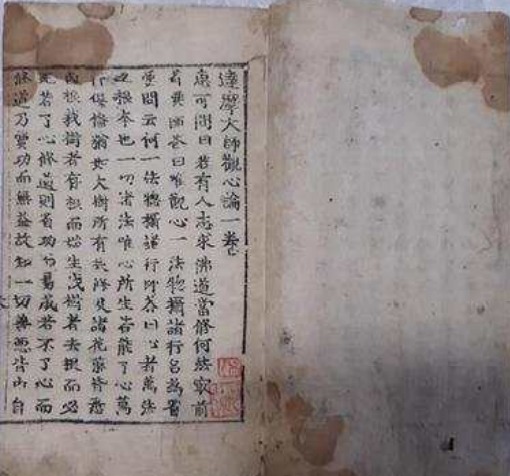 達摩大師觀心論一卷
慧可問曰若有人志求佛道當修何法最前
省要師荅曰唯觀心一法惣攝諸行名為省
要問云何一法惣攝諸行師荅曰心者萬法
之根本也一切諸法唯心所生若能了心萬
行俱俻猶如大樹所有枝條及諸花菓皆悉
因根栽樹者存根而始生伐樹者去根而必
死若了心修道則省功而易成若不了心而
修道乃費功而無益故知一切善惡皆由自